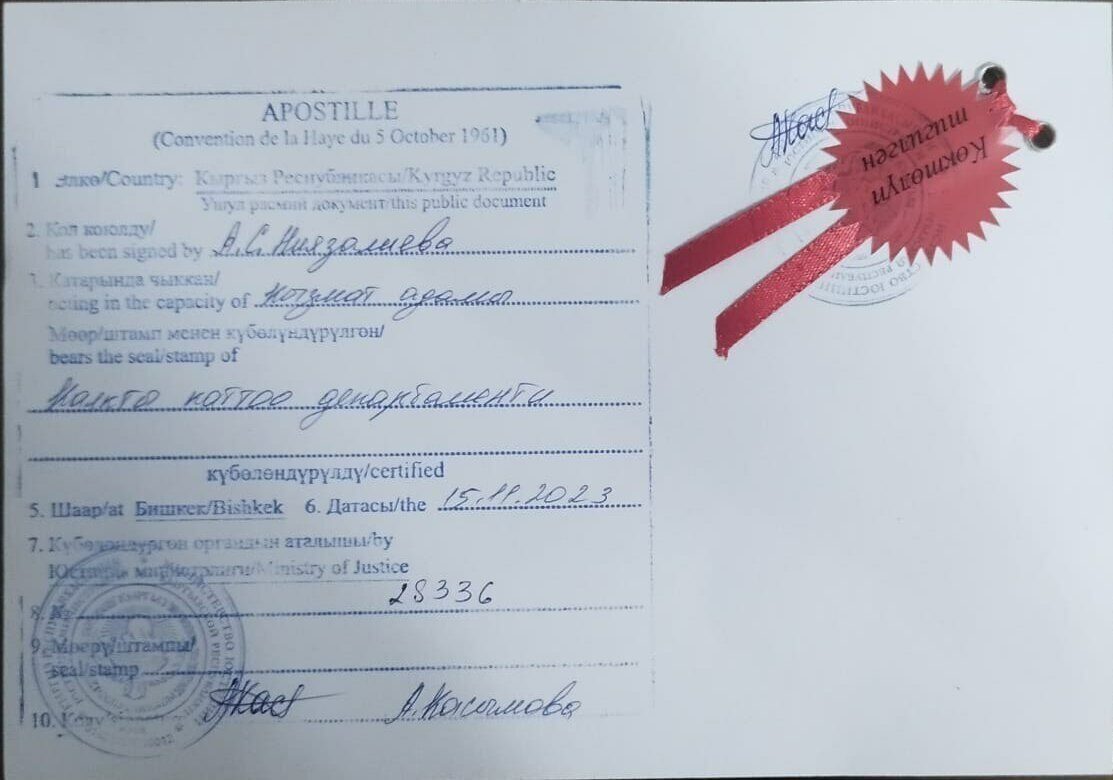 APOSTILLE
(Convention de la Haye du 5 October 1961)
1 Өлкө/Country: Кыргыз Республикасы/Kyrgyz Republic
Ушул расмий документ/this public document
2. Кол коюлду/
has been signed by А.С. Ниязалиева
3. Катарында чыккан/
acting in the capacity of Кызмат адамы
Мөөр/штамп менен күбөлүндүрүлгөн/
bears the seal/stamp of
Калкты каттоо департаменти
күбөлөндүрүлдү/certified
5. Шаар/at Бишкек/Bishkek 6. Датасы/the 15.11.2023
7. Күбөлөндүргөн органдын аталышы/by
Юстиция министрлиги/Ministry of Justice
8. № 28336
9. Мөөрү/штампы/
seal/stamp
10. Колу А. Касымова
Көктөлүп
тигилген